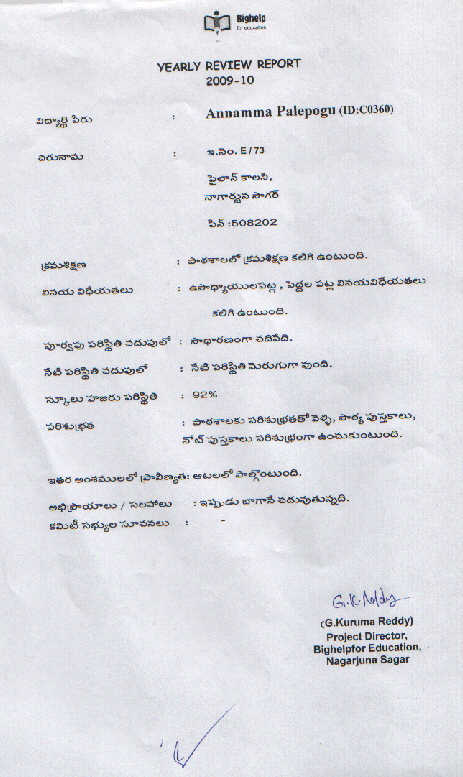 Bighelp
for education
YEARLY REVIEW REPORT
2009-10
విద్యార్థి పేరు : Annamma Palepogu (ID:C0360)
చిరునామ : ఇ.నెం. E/73
పైలాన్ కాలని,
నాగార్జున సాగర్
పిన్ :508202
క్రమశిక్షణ : పాఠశాలలో క్రమశిక్షణ కలిగి ఉంటుంది.
వినయ విధేయతలు : ఉపాధ్యాయులపట్ల , పెద్దల పట్ల వినయవిధేయతలు
కలిగి ఉంటుంది.
పూర్వపు పరిస్థితి చదువులో : సాధారణంగా చదివేది.
నేటి పరిస్థితి చదువులో : నేటి పరిస్థితి మెరుగుగా వుంది.
స్కూలు హాజరు పరిస్థితి : 92%
పరిశుభ్రత : పాఠశాలకు పరిశుభ్రతతో వెళ్ళి, పాఠ్య పుస్తకాలు,
నోట్ పుస్తకాలు పరిశుభ్రంగా ఉంచుకుంటుంది.
ఇతర అంశములలో ప్రావీణ్యత: ఆటలలో పాల్గొంటుంది.
అభిప్రాయాలు / సలహాలు : ఇప్పుడు బాగానే చదువుతున్నది.
కమిటీ సభ్యుల సూచనలు : -
G.K.Reddy
(G.Kuruma Reddy)
Project Director,
Bighelpfor Education,
Nagarjuna Sagar